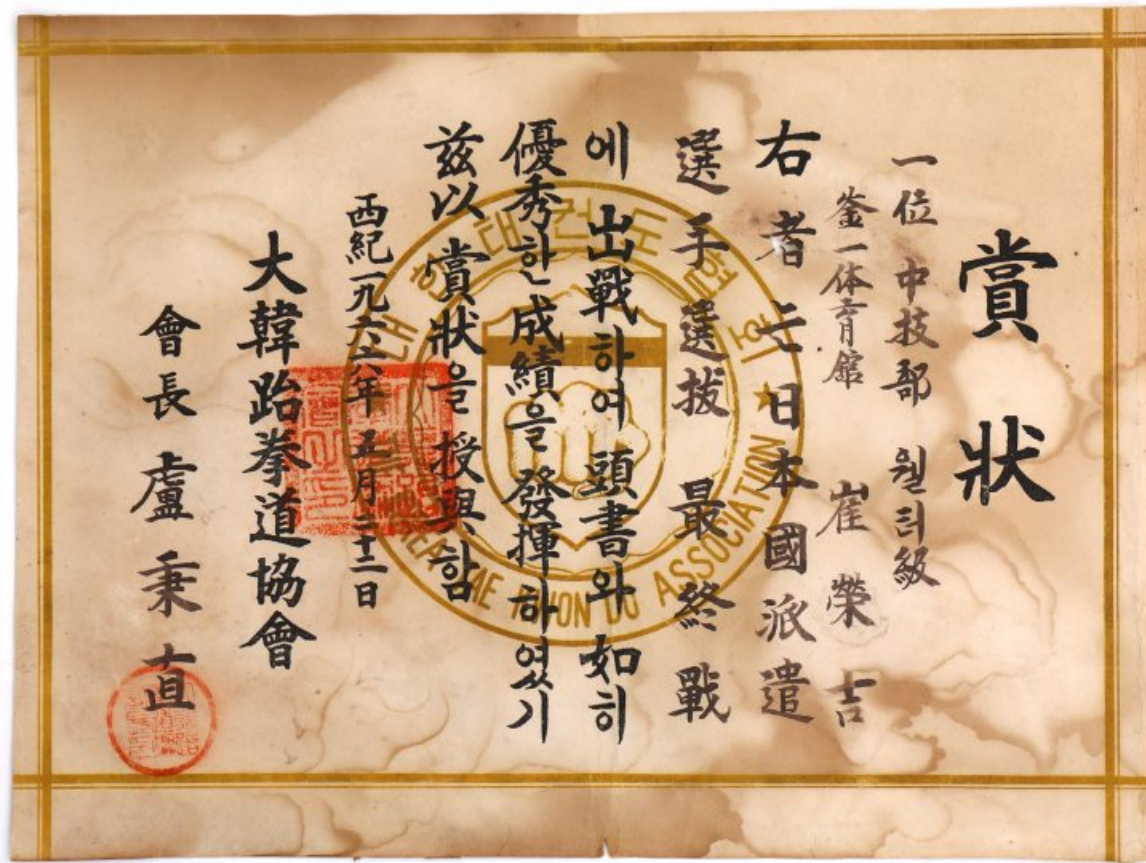 賞狀
一位 中技部 웰터級
釜一体育館 崔榮吉
右者는日本國派遣
選手選拔 最終戰
에 出戰하여 頭書와 如히
優秀한 成績을 發揮하였기
玆以 賞狀을 授與함
西紀一九六六年 五月二十二日
大韓跆拳道協會
會長 盧秉直
대한태권도협회
KOREA TAE KWON DO ASSOCIATION